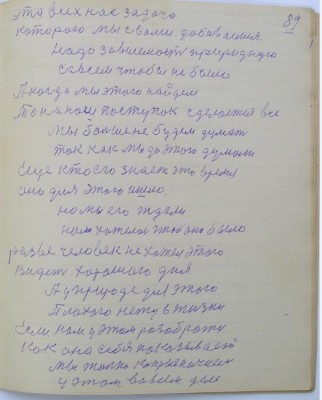 89
эта всех нас задача
которого мы с вами добавления
Надо зависимость природную
совсем чтобы не было
А когда мы этого найдем
То на наш поступок сделается все
мы больше не будем думать
так как мы до этого думали
Еще кто его знает это время
оно для этого ишло,
но мы его ждали
нам хотелось чтобы оно было
разве человек не хотел этого
видеть хорошего дня
А у природе для этого
Плохого нету в жизни
Если нам у этом разобрать
как она себя показывает
мы только
у этом во всем деле